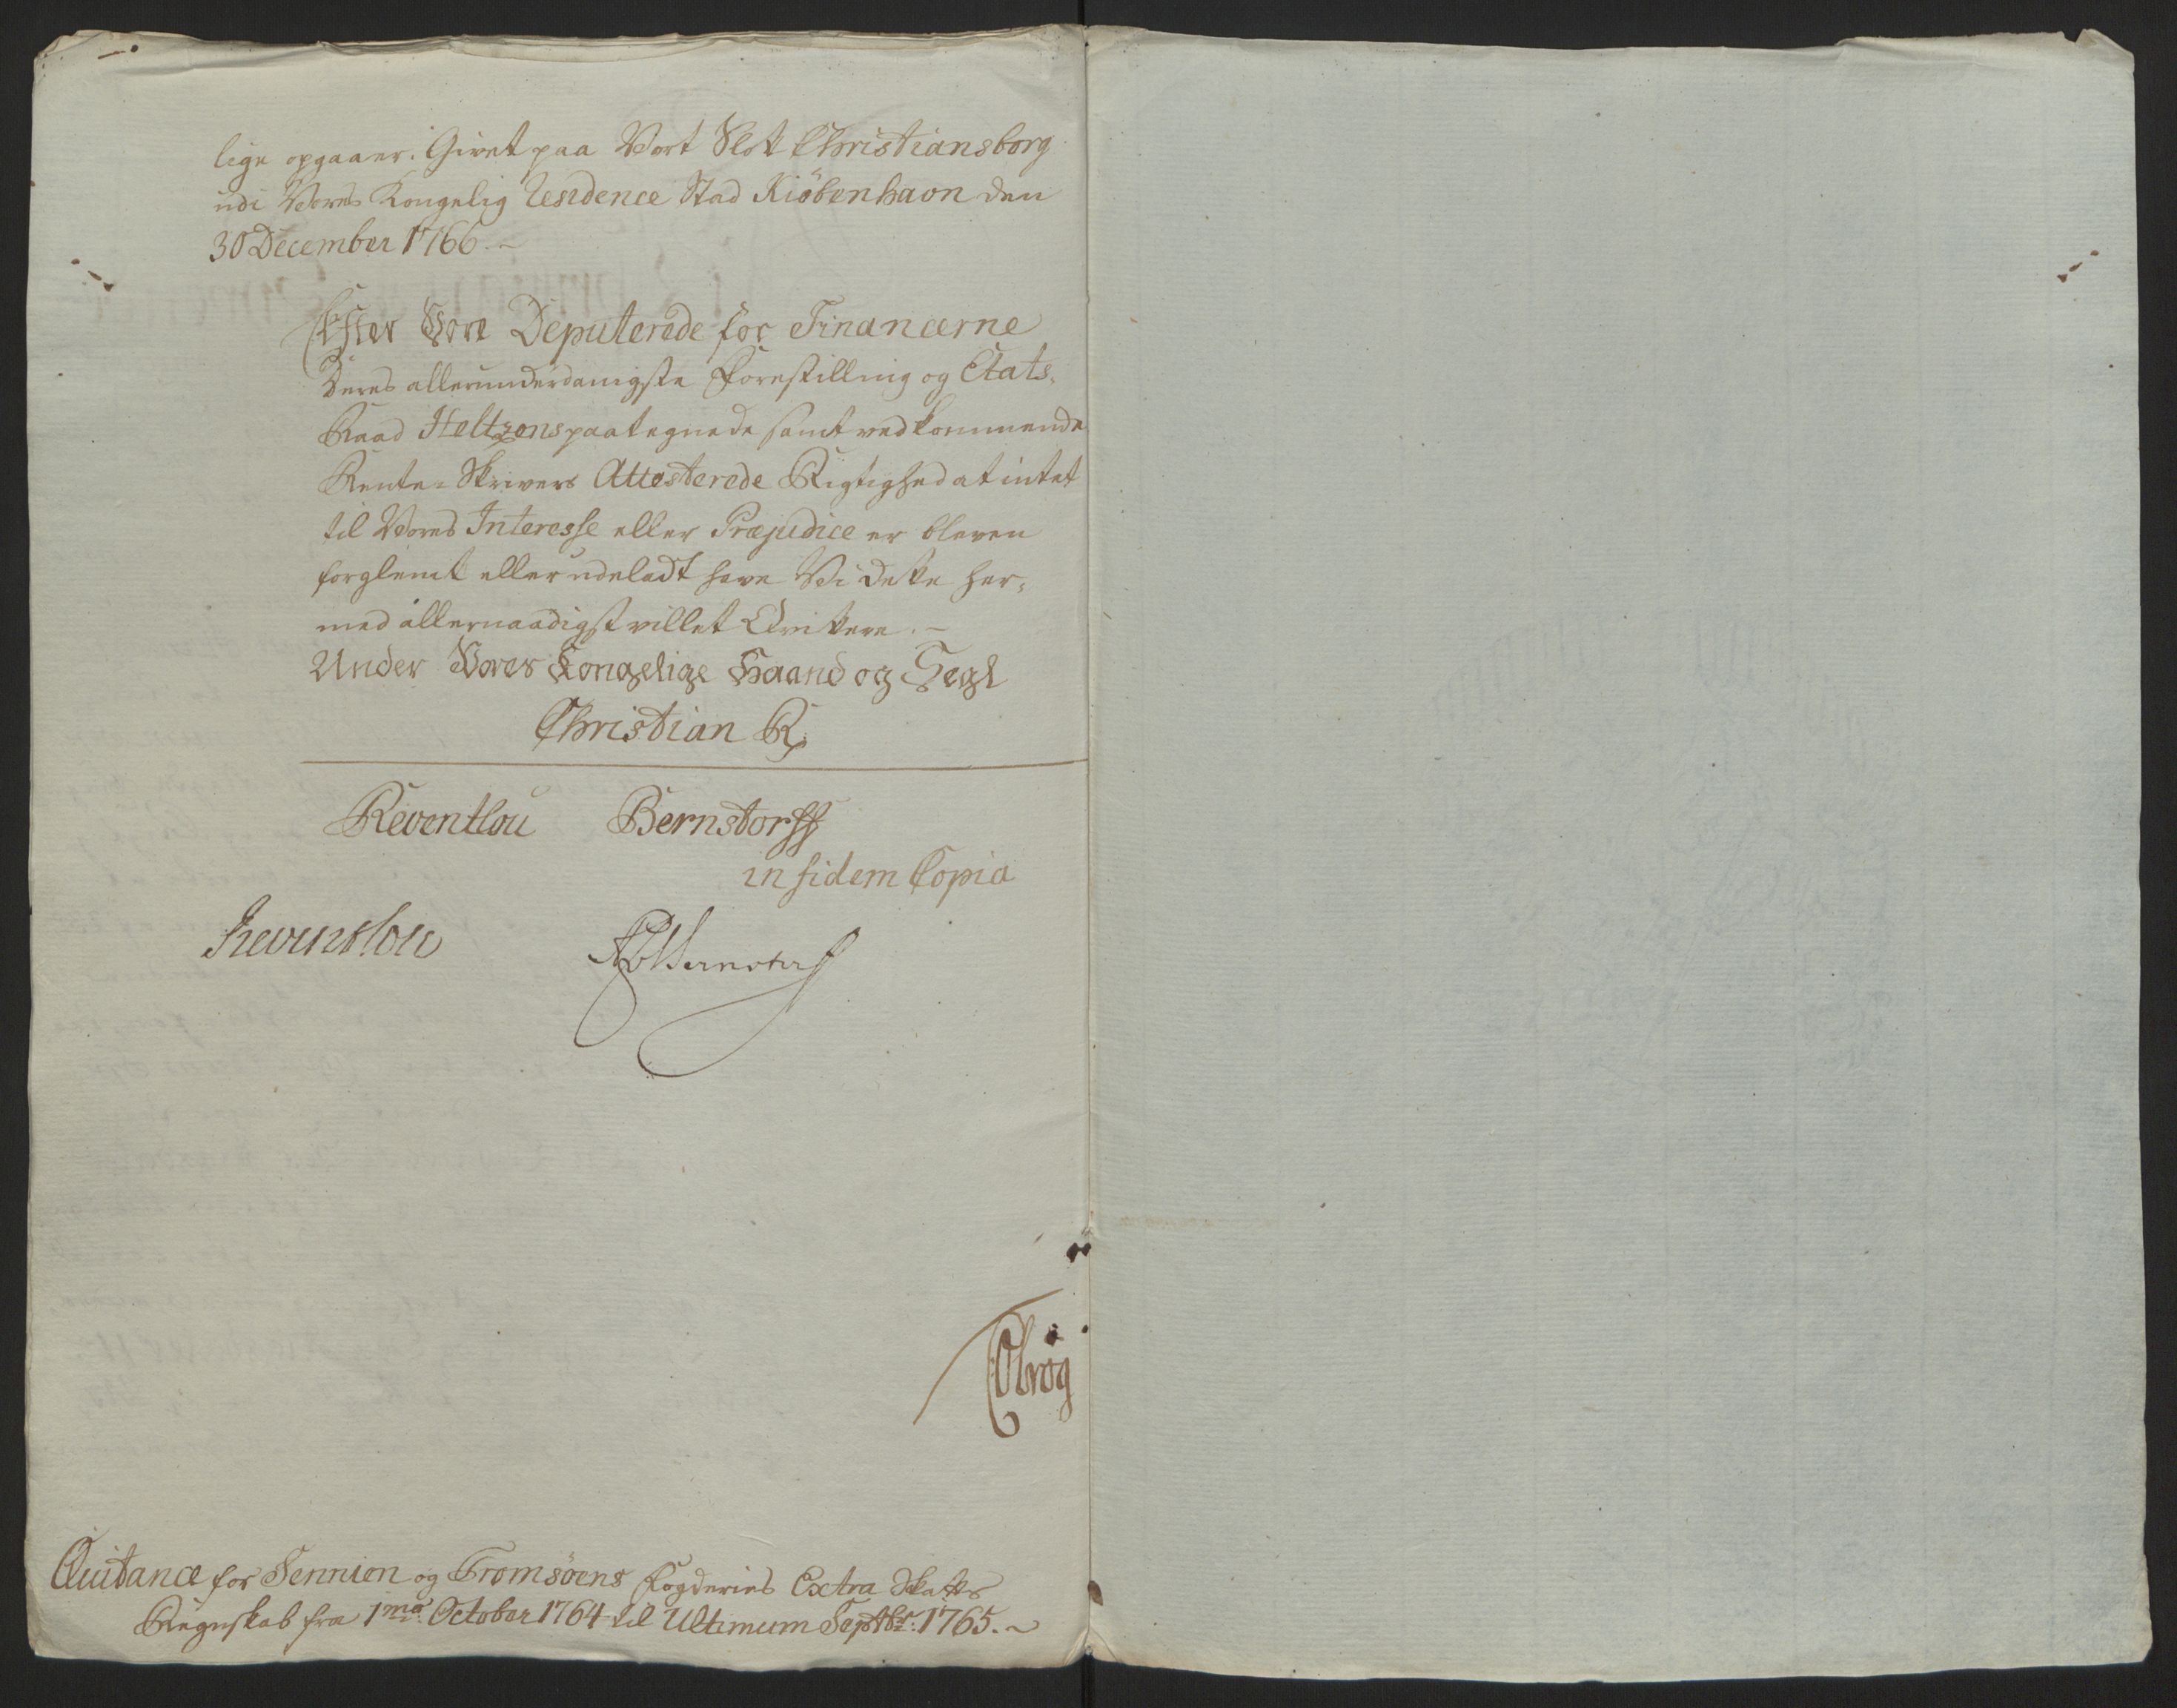 lige opgaaer. Givet paa Vort Slot Christiansborg
udi Vores Kongelig Residence Stad Kiöbenhavn den
30 December 1766.
Efter Vore Deputerede for Financerne
Deres allerunderdanigste Forestilling og Etats-
Raad Heltzens paategnede samt vedkommende
Rente-Skrivers Attesterede Rigtighed at intet
til Vores Interesse eller Præjudice er bleven
forglemt eller udeladt have Vi dette her-
med allernaadigst villet Qvittere.
Under Vores Kongelige Haand og Segl
Christian R
Reventlou Bernstorff
in fidem Copia
Reventlou Bernstorff
Quitance for Sennien og Tromsöens Fogderies Extra Skatts
Regnskab fra 1mo October 1764 til Ultimum Septbr: 1765.